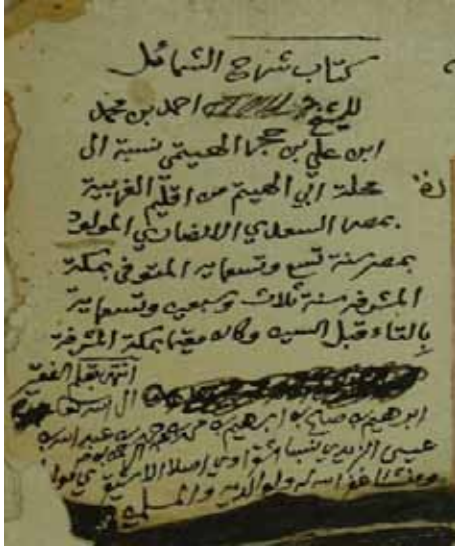 كتاب شرح الشمائل
للشيخ احمد بن محمد
ابن علي بن حجر الهيتمي نسبة الى
محلة ابي الهيتم من اقليم الغربية
بمصر السعدي الانصاري المولود
بمصر سنة تسع وتسعماية المتوفى بمكة
المشرفة سنة ثلاث وسبعين وتسعماية
بالتاء قبل السين وكان مقيما بمكة المشرفة
انتهى بقلم الفقير
الى الله تعالى
ابرهيم بن صالح بن ابرهيم بن محمد بن عبد الله بن
عيسى الزيدي نسبا اصلا
ومنشا غفر الله له ولوالديه والمسلمين